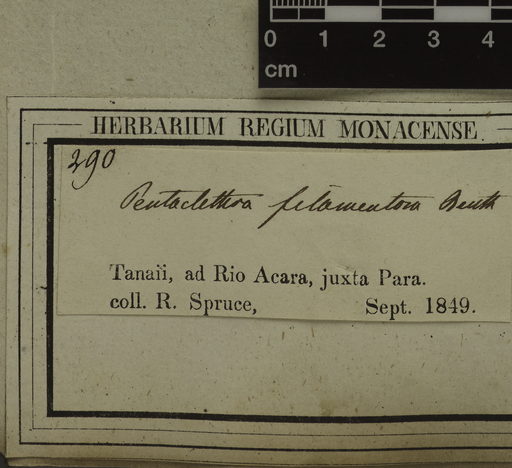 0 1 2 3 4
cm
HERBARIUM REGIUM MONACENSE
290
Pentaclethra filamentosa Benth
Tanaii, ad Rio Acara, juxta Para.
coll. R. Spruce, Sept. 1849.